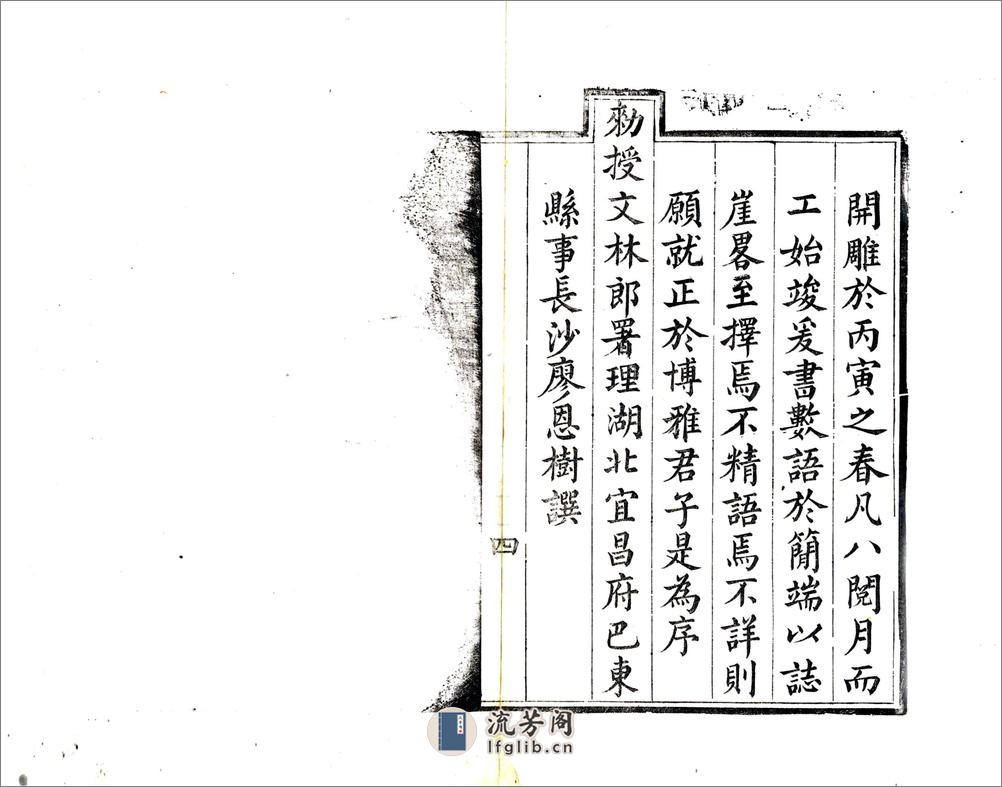 開雕於丙寅之春凡八閱月而
工始竣爰書數語於簡端以誌
崖畧至擇焉不精語焉不詳則
願就正於博雅君子是為序
勑授文林郎署理湖北宜昌府巴東
縣事長沙廖恩樹譔
四
流芳阁
lfglib.cn